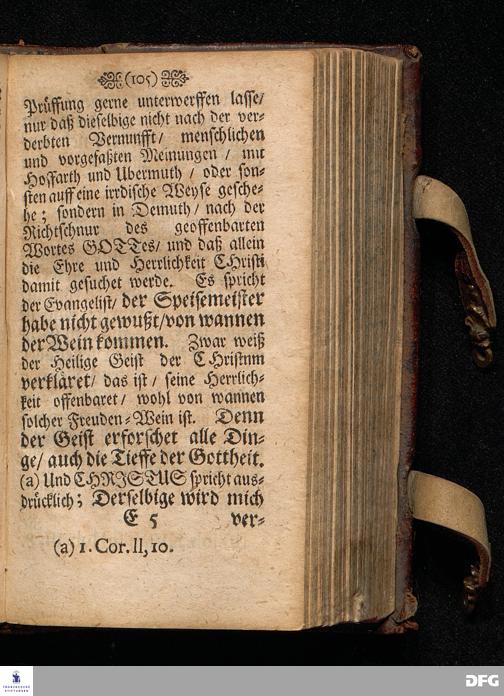 (105)
Prüffung gerne unterwerffen lasse/
nur daß dieselbige nicht nach der ver-
derbten Vernunfft/ menschlichen
und vorgefaßten Meinungen / mit
Hoffarth und Ubermuth / oder son-
sten auff eine irrdische Weyse gesche-
he ; sondern in Demuth/ nach der
Richtschnur des geoffenbarten
Wortes GOTTes/ und daß allein
die Ehre und Herrlichkeit CHristi
damit gesuchet werde. Es spricht
der Evangelist/ der Speisemeister
habe nicht gewußt/von wannen
der Wein kommen. Zwar weiß
der Heilige Geist der CHristnm
verkläret/ das ist / seine Herrlich-
keit offenbaret/ wohl von wannen
solcher Freuden-Wein ist. Denn
der Geist erforschet alle Din-
ge/ auch die Tieffe der Gottheit.
(a) Und CHRISTUS spricht aus-
drücklich; Derselbige wird mich
E 5 ver-
(a) 1. Cor. II, 10.
FRANCKESCHE
STIFTUNGEN
DFG